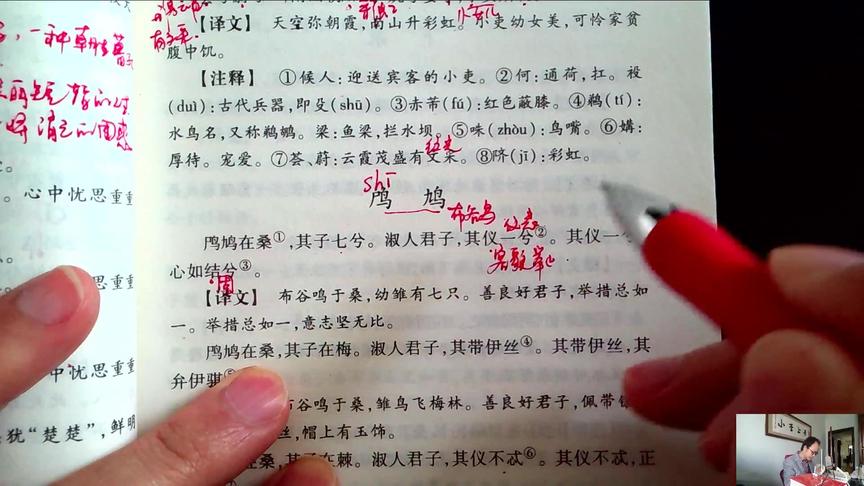 【译文】 天空弥朝霞,南山升彩虹。小吏幼女美,可怜家贫
腹中饥。
【注释】 ①候人:迎送宾客的小吏。②何:通荷,扛。祋
(duì):古代兵器,即殳(shū)。③赤芾(fú):红色蔽膝。④鹈(tí):
水鸟名,又称鹈鹕。梁:鱼梁,拦水坝。⑤咮(zhòu):鸟嘴。⑥媾:
厚待。宠爱。⑦荟、蔚:云霞茂盛有文采。⑧隮(jī):彩虹。
shī
鸤 鸠
布谷鸟
仪态
鸤鸠在桑①,其子七兮。淑人君子,其仪一兮②。其仪一兮
心如结兮③。
固
【译文】 布谷鸣于桑,幼雏有七只。善良好君子,举措总如
一。举措总如一,意志坚无比。
鸤鸠在桑,其子在梅。淑人君子,其带伊丝④。其带伊丝,其
弁伊骐⑤
布谷鸣于桑,雏鸟飞梅林。善良好君子,佩带
丝,帽上有玉饰。
在桑,其子在棘。淑人君子,其仪不忒⑥。其仪不忒,正
一种朝生暮
。心中忧思重重
中忧思重重
犹“楚楚”,鲜明